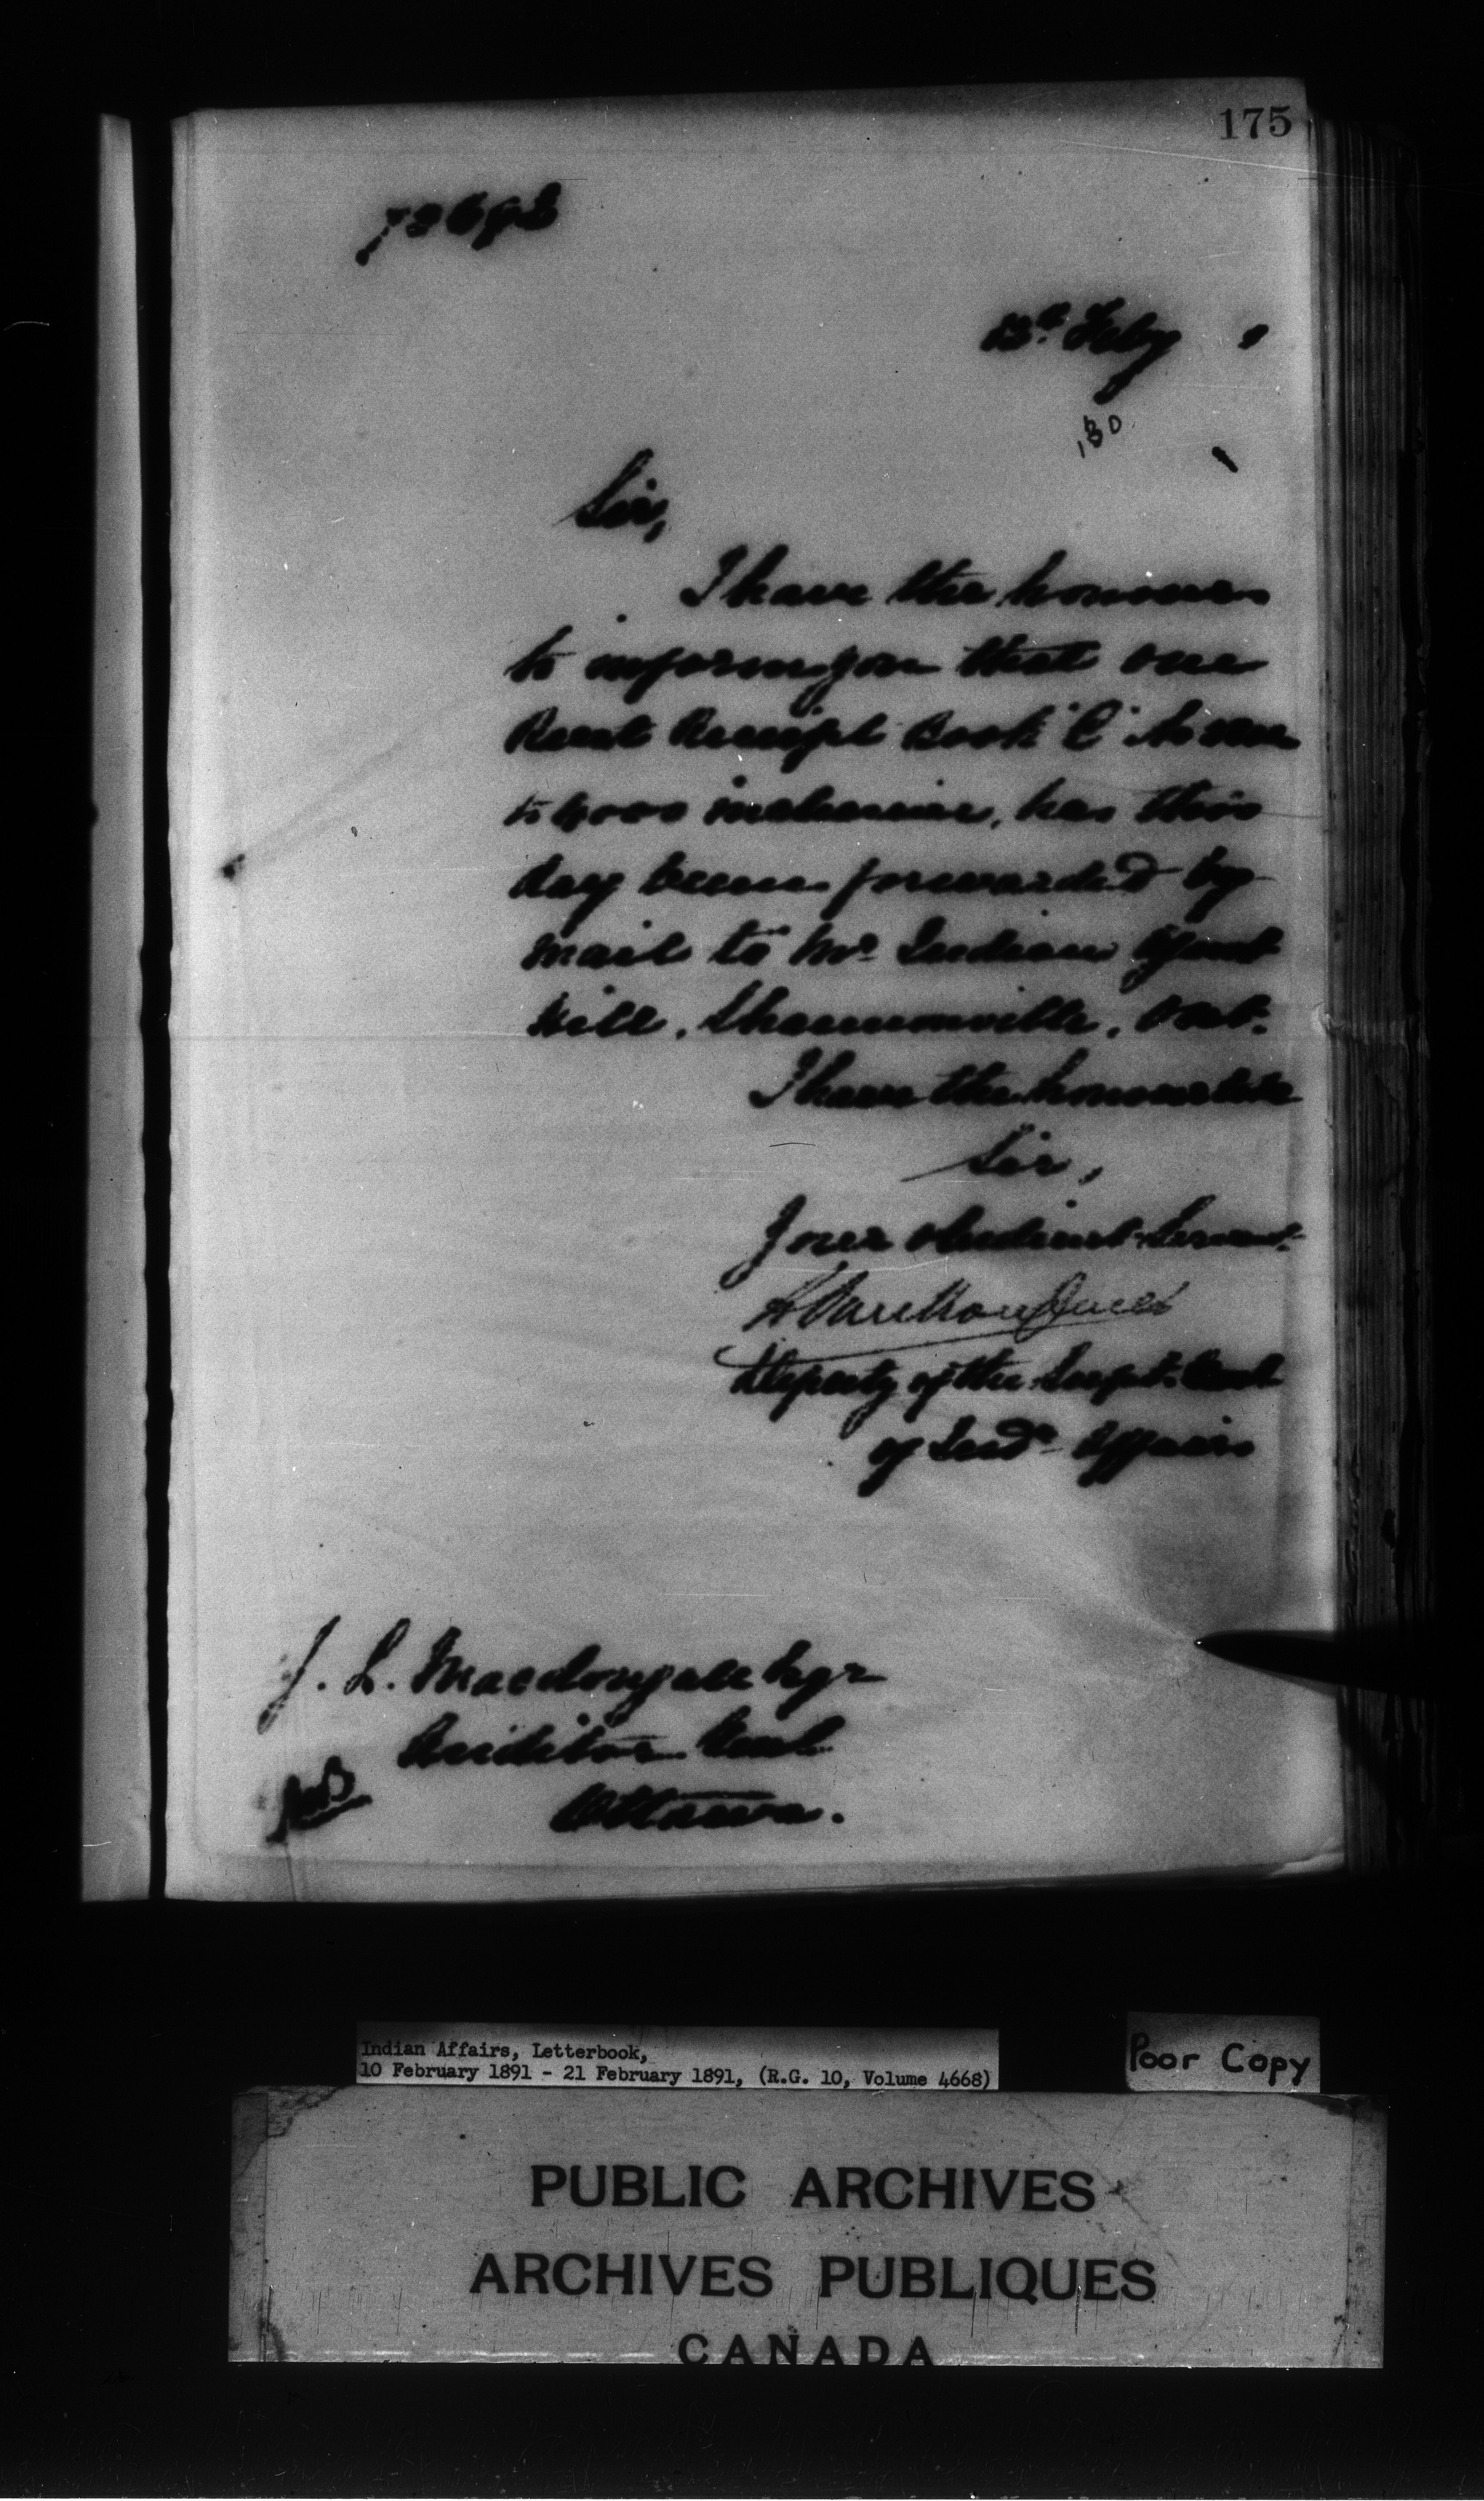 175
13th Feby
130
Sir,
I have the honour
to inform you that one
Rent Receipt Book "C"
to 4000 inclusive, has this
day been forwarded by
mail to Mr Indian Agent
Hill, Shannonville, Ont.
I have the honour to be
Sir,
Your obedient Servant
Deputy of the Supt. Genl
of Indn Affairs
J. L. Macdougall Esqr
Auditor Genl
Ottawa.
Indian Affairs, Letterbook,
10 February 1891 - 21 February 1891, (R.G. 10, Volume 4668)
Poor Copy
PUBLIC ARCHIVES
ARCHIVES PUBLIQUES
CANADA